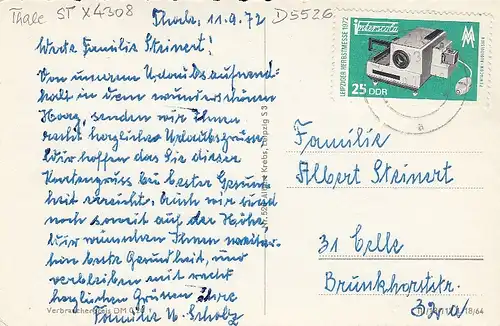 Thale ST X4308
D5526
Thale, 11.9.72
Werte Familie Steinert!
Von unserem Urlaubsaufent-
halt in dem wunderschönen
Harz, senden wir Ihnen
recht herzliche Urlaubsgrüsse
Wir hoffen das Sie dieser
Kartengruss bei bester Gesund-
heit erreicht, auch wir sind
noch soweit auf der Höhe
Wir wünschen Ihnen weiter-
hin beste Gesundheit, und
verbleiben mit recht
herzlichen Grüssen Ihre
Familie Scholz
Verbraucherpreis DM 0,20
Krebs, Leipzig S 3
LEIPZIGER HERBSTMESSE 1972
MM
25 DDR
Familie
Albert Steinert
31 Celle
Brunkhorststr.
18/64